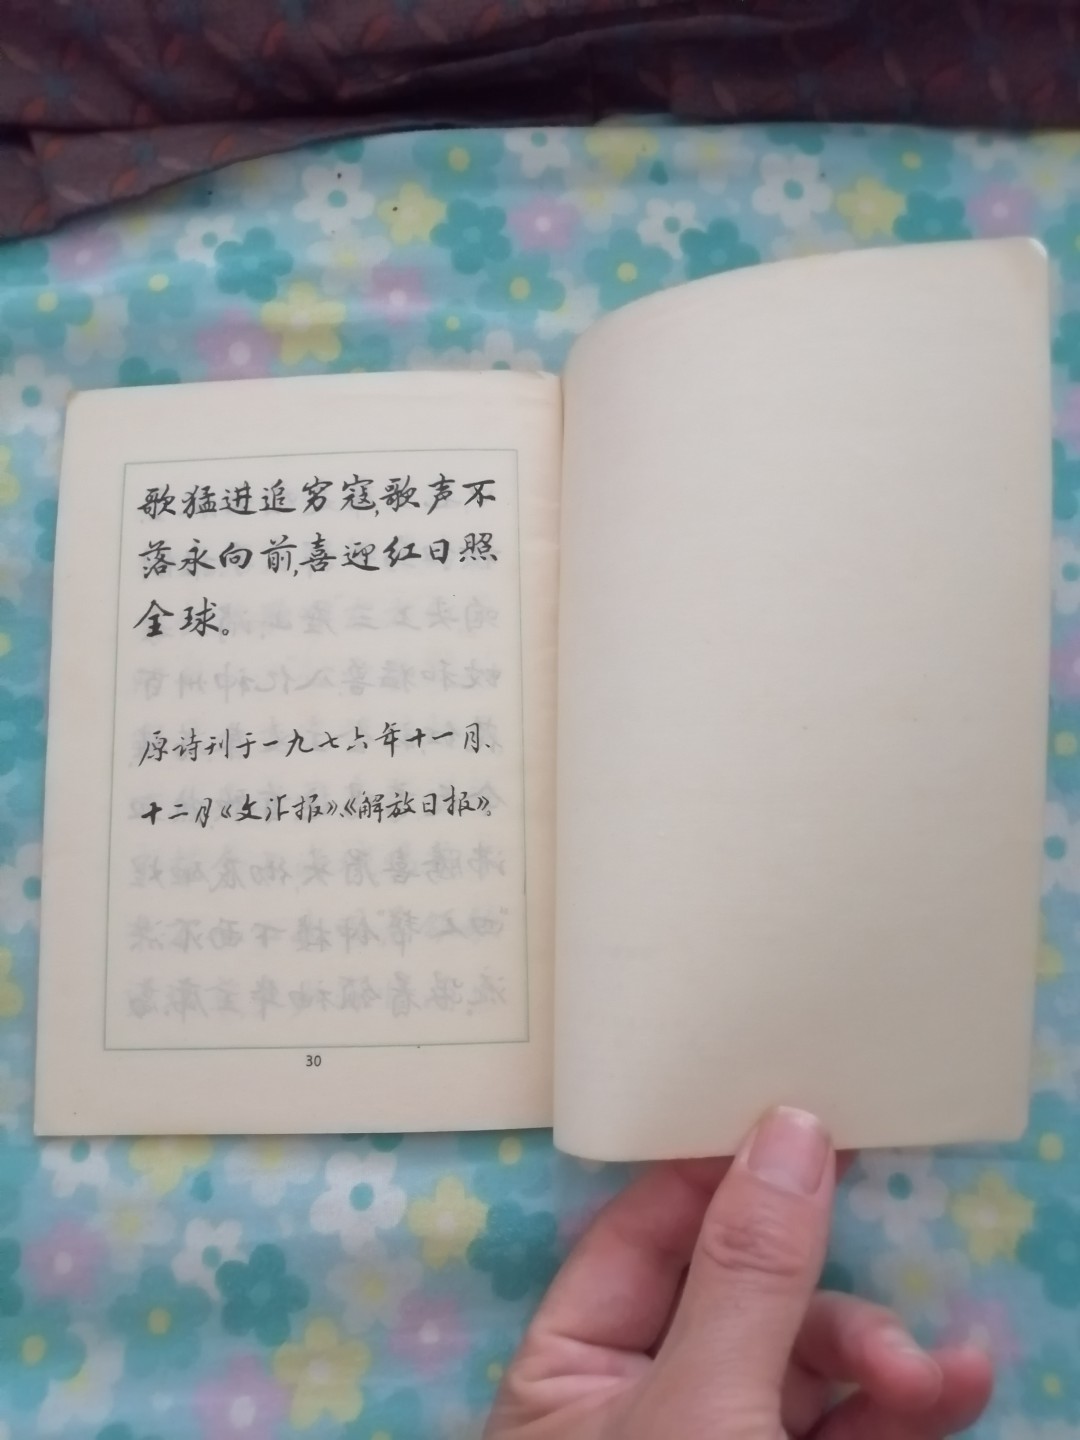 歌猛进追穷寇,歌声不
落永向前,喜迎红日照
全球。
原诗刊于一九七六年十一月、
十二月《文汇报》、《解放日报》。
30